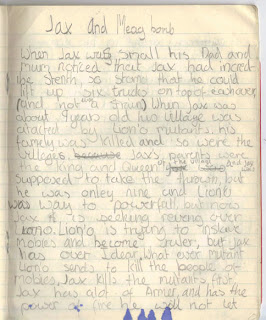 Jax and Meag bomb
When Jax was small his Dad and
mum noticed that Jax had incred
ible Stenth, so strong that he could
lift up six trucks on top of eachover
(and that again) When Jax was
about 9 years old his village was
atacted by Lion'o mutants, his
family was killed and so were the
villegers. because Jax's parents were
the king and Queen of the village and Jax
supposed to take the thrown, but
he was onley nine and Lion'o
was way to powerfull, but now
Jax is seeking reveng over
Lion'o. Lion'o is trying to inslave
Mobies and become ruler, but Jax
has over idear, what ever mutant
Lion'o sends to kill the people of
mobies, Jax kills the mutants first,
Jax has alot of Armer, and has the
power of fire he well not let